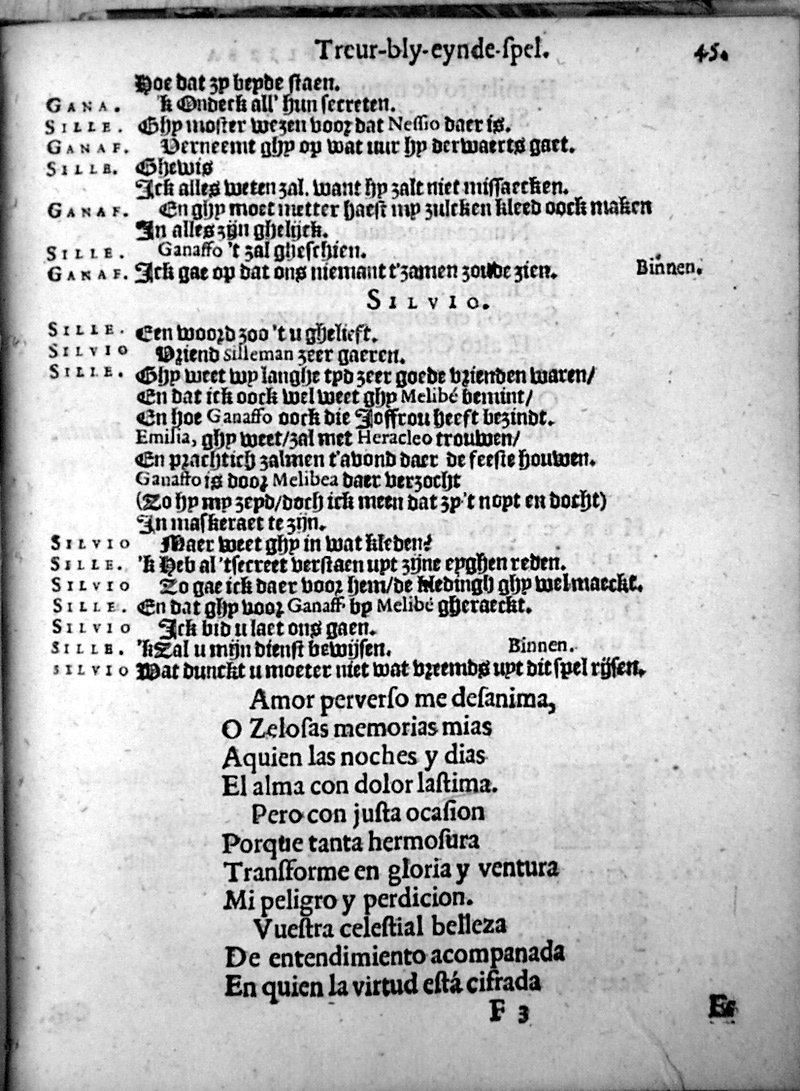 Treur-bly-eynde-ſpel. 45.
Hoe dat zy beyde ſtaen.
GANA. 'k Ondeck all' hun ſecreten.
SILLE. Ghy moſter wezen voor dat Neſſio daer is.
GANAF. Verneemt ghy op wat uur hy derwaerts gaet.
SILLE. Ghewis
Ick alles weten zal, want hy zalt niet miſſaecken.
GANAF. En ghy moet metter haeſt my zulcken kleed oock maken
In alles zijn ghelijck.
SILLE. Ganaſſo 't zal gheſchien.
GANAF. Ick gae op dat ons niemant t'zamen zoude zien. Binnen.
SILVIO.
SILLE. Een woord zoo 't u ghelieft.
SILVIO Vriend Silleman zeer gaeren.
SILLE. Ghy weet wy langhe tyd zeer goede vrienden waren/
En dat ick oock wel weet ghy Melibé bemint/
En hoe Ganaſſo oock die Joffrou heeft bezindt.
Emilia, ghy weet/zal met Heracleo trouwen/
En prachtich zalmen t'avond daer de feeſte houwen.
Ganaſſo is door Melibea daer verzocht
(Zo hy my zeyd/doch ick meen dat zy't noyt en docht)
In maſkeraet te zijn.
SILVIO Maer weet ghy in wat kleden?
SILLE. 'k Heb al 'tſecreet verſtaen uyt zijne eyghen reden.
SILVIO Zo gae ick daer voor hem/de kledingh ghy wel maeckt.
SILLE. En dat ghy voor Ganaff. by Melibé gheraeckt.
SILVIO Ick bid u laet ons gaen.
SILLE. 'k Zal u mijn dienſt bewijſen. Binnen.
SILVIO Wat dunckt u moeter niet wat vreemds uyt dit ſpel rijſen.
Amor perverſo me deſanima,
O Zeloſas memorias mias
Aquien las noches y dias
El alma con dolor laſtima.
Pero con juſta ocaſion
Porque tanta hermoſura
Tranſforme en gloria y ventura
Mi peligro y perdicion.
Vueſtra celeſtial belleza
De entendimiento acompanada
En quien la virtud eſtá cifrada
F 3 Es